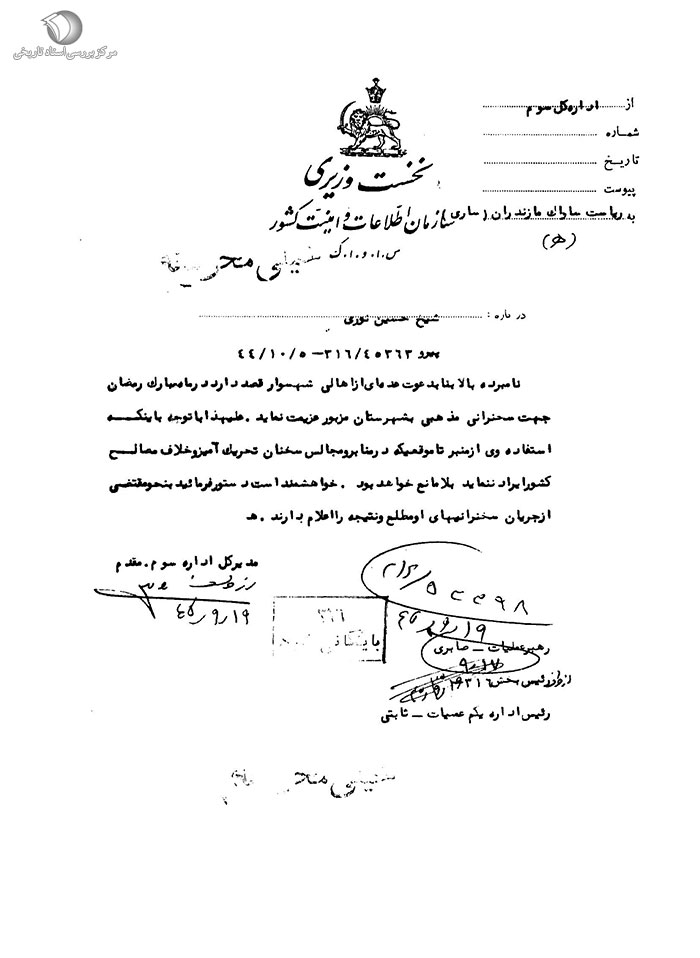 مرکز بررسی اسناد تاریخی
از اداره کل سوم
شماره
تاریخ
پیوست
نخست وزیری
به ریاست ساواك مازندران (ساری)
سازمان اطلاعات و امنیت کشور
(ه)
س.ا.و.ا.ک
خیلی محرمانه
در باره : شیخ حسین نوری
پیرو ۳۱۶/۴۵۳۶۳ – ۴۴/۱۰/۵
نامبرده بالا بنا بدعوت عده‌ای از اهالی شهسوار قصد دارد در ماه مبارك رمضان
جهت سخنرانی مذهبی بشهرستان مزبور عزیمت نماید . علیهذا با توجه باینکــه
استفاده وی از منبر تا موقعیکه در منابر و مجالس سخنان تحریك آمیز و خلاف مصالــح
کشور ایراد ننماید بلامانع خواهد بود . خواهشمند است دستور فرمائید بنحو مقتضی
از جریان سخنرانیهای او مطلع و نتیجه را اعلام دارند . ه
مدیر کل اداره سوم . مقدم
۴۵/۹/۱۹
۳۱۶
بایگانی شود
۴۵/۹/۱۹
رهبر عملیات – صابری
۹/۱۷
رئیس بخش ۳۱۶
رئیس اداره یکم عملیات – ثابتی
خیلی محرمانه